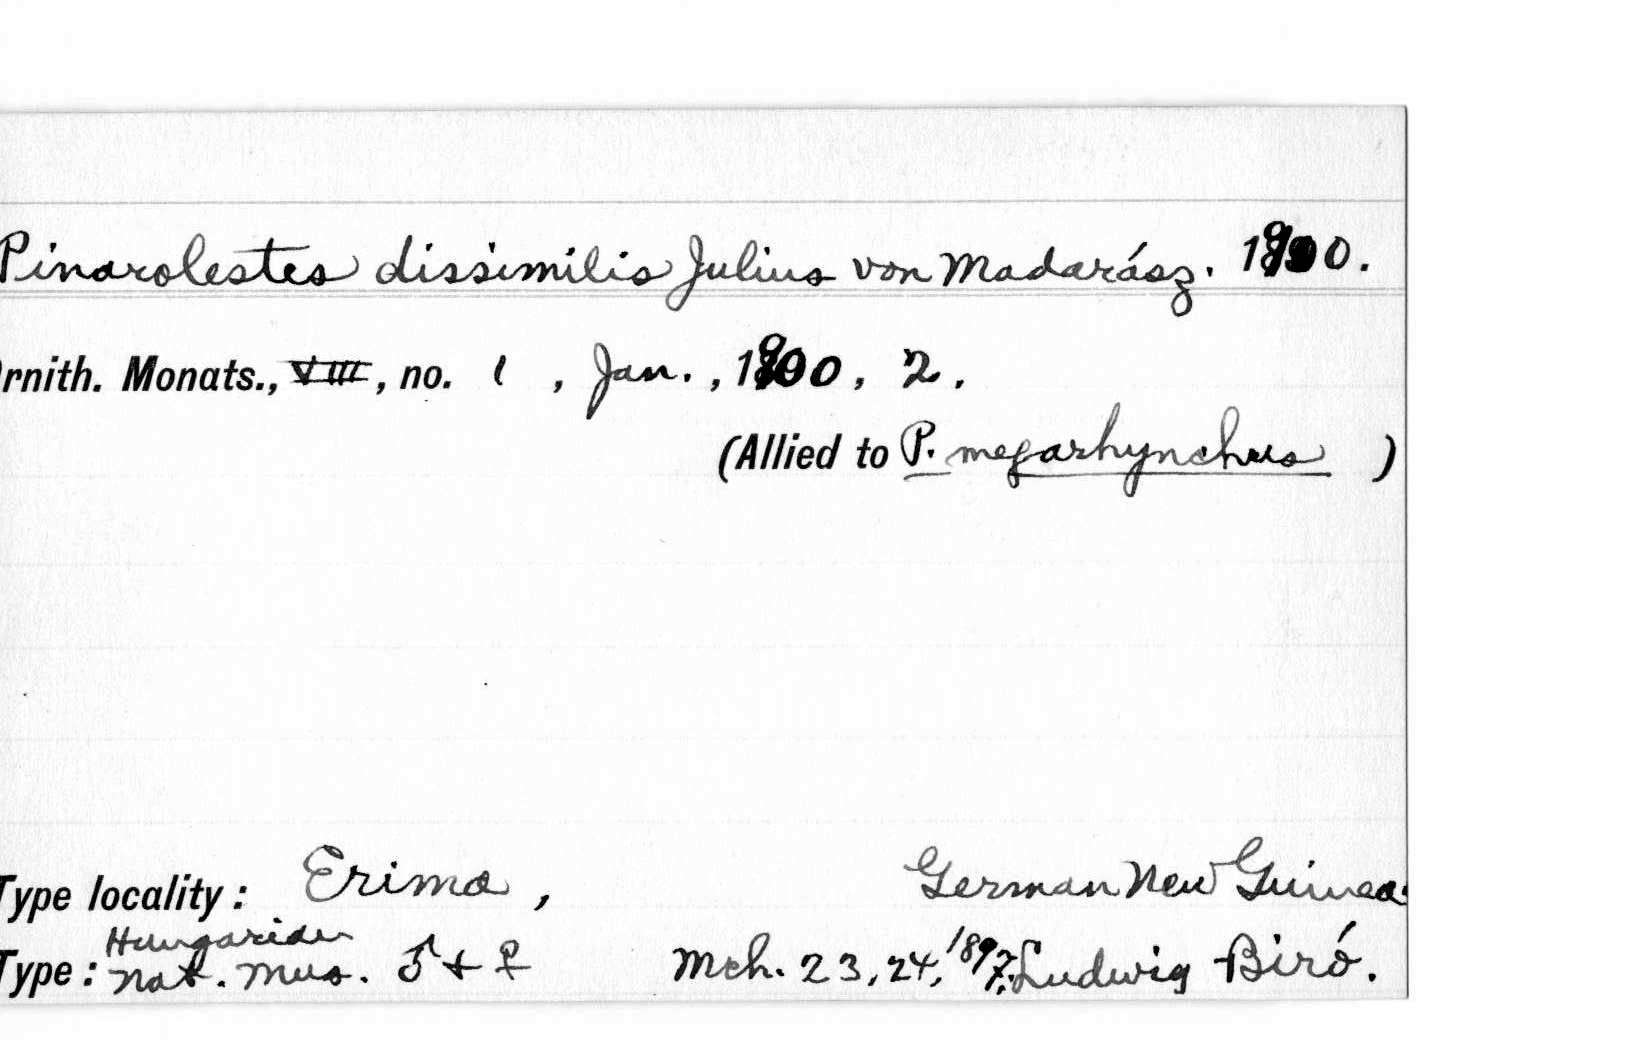 Pinarolestes dissimilis Julius von Madarász. 1900.
rnith. Monats., VIII, no. 1, Jan., 1900, 2.
(Allied to P. megarhynchus)
Type locality: Erima, German New Guinea.
Hungarian
Type: Nat. Mus. ♂ + ♀ Mch. 23, 24, 1897. Ludwig Biró.